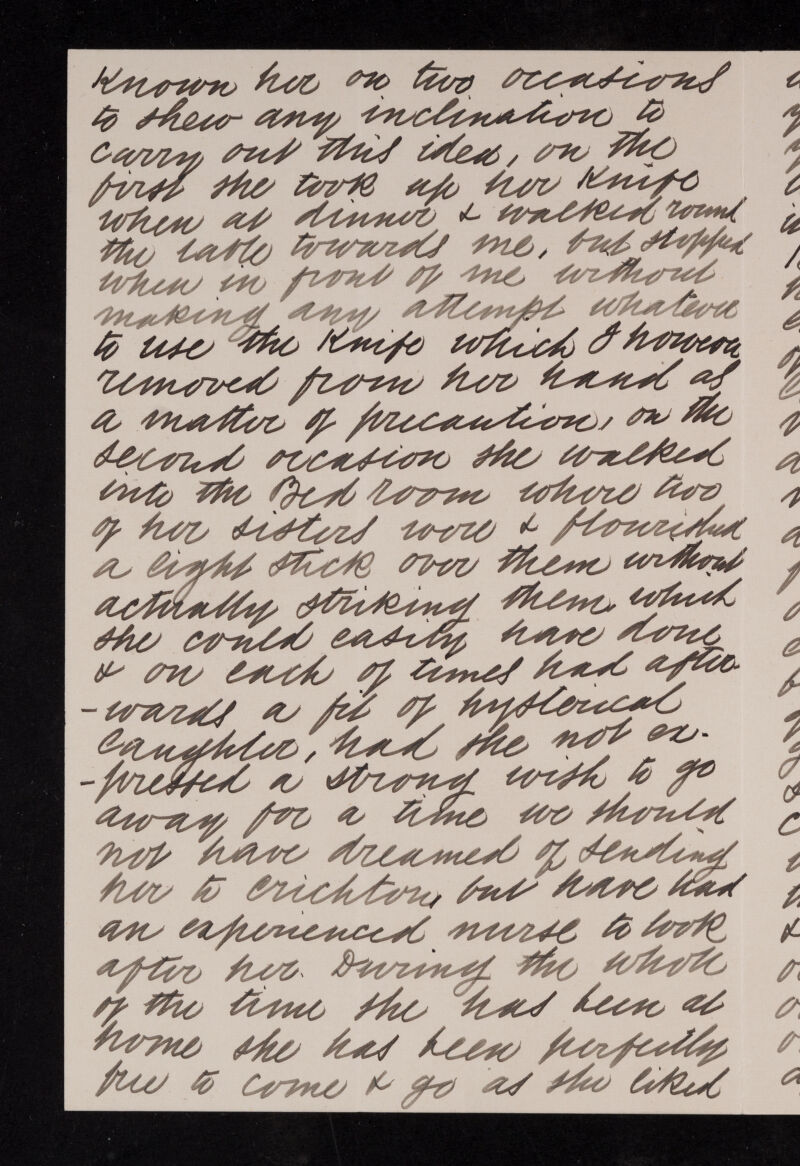 Known her on two occasions
to shew any inclination to
carry out this idea, on the
first she took up her Knife
when at dinner & walked round
the table towards me, but stopped
when in front of me without
making any attempt whatever
to use the Knife which I however
removed from her hand as
a matter of precaution, on the
second occasion she walked
into the Bed room where two
of her sisters were & flourished
a light stick over them without
actually striking them, which
she could easily have done
& on each of times had after-
-wards a fit of hysterical
laughter, had she not ex-
-pressed a strong wish to go
away for a time we should
not have dreamed of sending
her to Crichton, but have had
an experienced nurse to look
after her. During the whole
of the time she has been at
home she has been perfectly
free to come & go as she liked